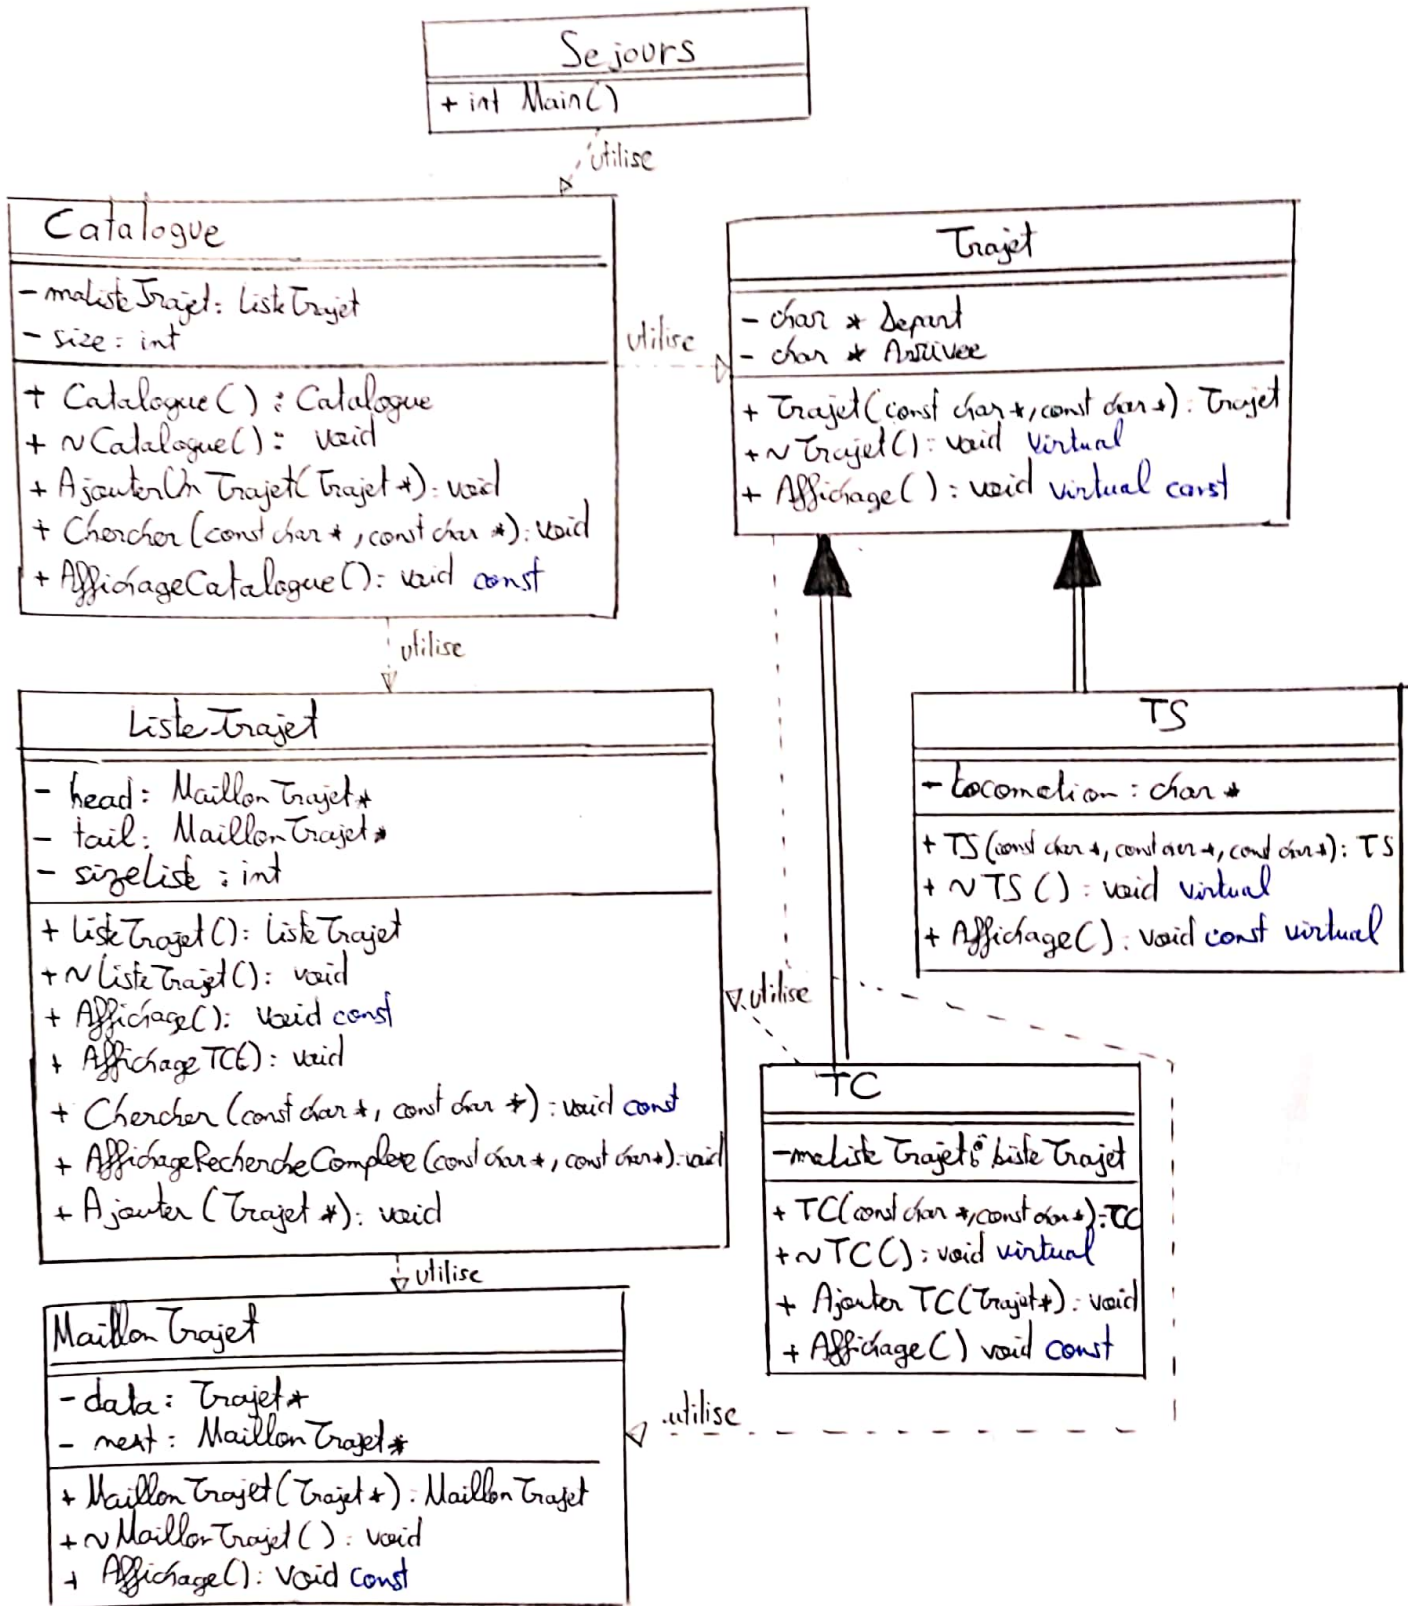 Sejours
+ int Main()
utilise
Catalogue
- maListeTrajet: ListeTrajet
- size: int
+ Catalogue() : Catalogue
+ ~Catalogue() : void
+ AjouterUnTrajet(Trajet*): void
+ Chercher(const char *, const char *): void
+ AffichageCatalogue(): void const
utilise
Trajet
- char * Depart
- char * Arrivee
+ Trajet(const char*, const char*): Trajet
+ ~Trajet(): void virtual
+ Affichage() : void virtual const
utilise
ListeTrajet
- head: MaillonTrajet*
- tail: MaillonTrajet*
- sizeListe : int
+ ListeTrajet(): ListeTrajet
+ ~ListeTrajet(): void
+ Affichage(): void const
+ AffichageTC(): void
+ Chercher (const char *, const char *): void const
+ AffichageRechercheComplexe(const char*, const char*): void
+ Ajouter (Trajet *): void
TS
- Locomotion : char *
+ TS(const char*, const char*, const char*): TS
+ ~TS() : void virtual
+ Affichage() : void const virtual
utilise
TC
- maListeTrajet: ListeTrajet
+ TC(const char *, const char*): TC
+ ~TC(): void virtual
+ AjouterTC(Trajet*): void
+ Affichage() void const
utilise
MaillonTrajet
- data: Trajet*
- next: MaillonTrajet*
+ MaillonTrajet(Trajet*): MaillonTrajet
+ ~MaillonTrajet(): void
+ Affichage(): void const
utilise